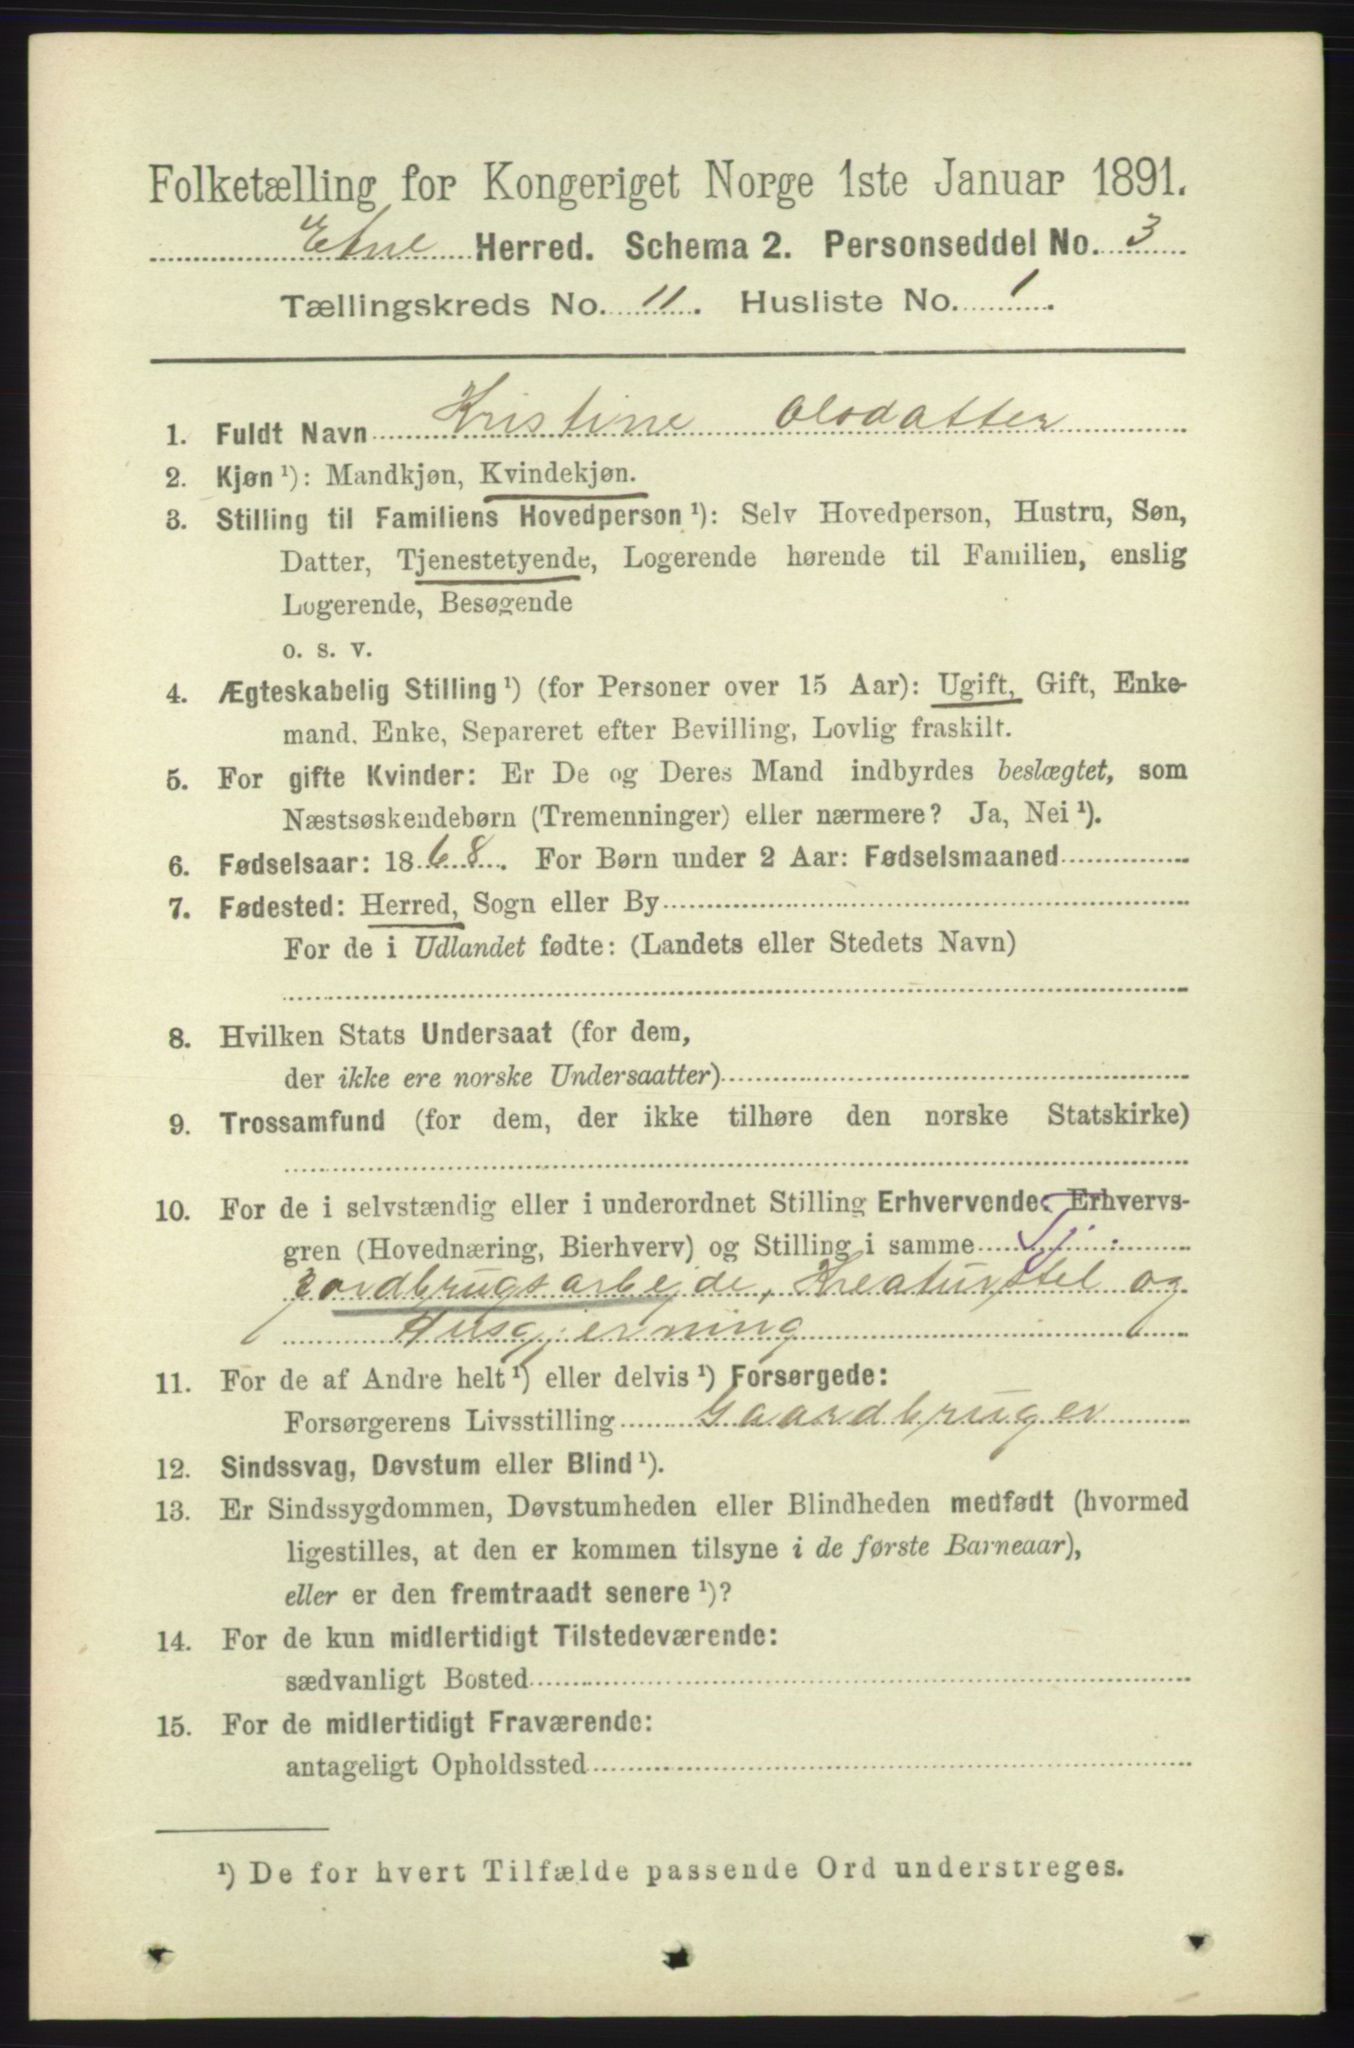 Folketælling for Kongeriget Norge 1ste Januar 1891.
Etne Herred. Schema 2. Personseddel No. 3
Tællingskreds No. 11. Husliste No. 1.
1. Fuldt Navn Kristine Olsdatter
2. Kjøn ¹): Mandkjøn, Kvindekjøn.
3. Stilling til Familiens Hovedperson ¹): Selv Hovedperson, Hustru, Søn,
Datter, Tjenestetyende, Logerende hørende til Familien, enslig
Logerende, Besøgende
o. s. v.
4. Ægteskabelig Stilling ¹) (for Personer over 15 Aar): Ugift, Gift, Enke-
mand, Enke, Separeret efter Bevilling, Lovlig fraskilt.
5. For gifte Kvinder: Er De og Deres Mand indbyrdes beslægtet, som
Næstsøskendebørn (Tremenninger) eller nærmere? Ja, Nei ¹).
6. Fødselsaar: 1868. For Børn under 2 Aar: Fødselsmaaned
7. Fødested: Herred, Sogn eller By
For de i Udlandet fødte: (Landets eller Stedets Navn)
8. Hvilken Stats Undersaat (for dem,
der ikke ere norske Undersaatter)
9. Trossamfund (for dem, der ikke tilhøre den norske Statskirke)
10. For de i selvstændig eller i underordnet Stilling Erhvervende: Erhvervs-
gren (Hovednæring, Bierhverv) og Stilling i samme Tj.
Jordbrugsarbejde, Kreaturstel og
Husgjerning
11. For de af Andre helt ¹) eller delvis ¹) Forsørgede:
Forsørgerens Livsstilling Gaardbruger
12. Sindssvag, Døvstum eller Blind ¹).
13. Er Sindssygdommen, Døvstumheden eller Blindheden medfødt (hvormed
ligestilles, at den er kommen tilsyne i de første Barneaar),
eller er den fremtraadt senere ¹)?
14. For de kun midlertidigt Tilstedeværende:
sædvanligt Bosted
15. For de midlertidigt Fraværende:
antageligt Opholdssted
¹) De for hvert Tilfælde passende Ord understreges.